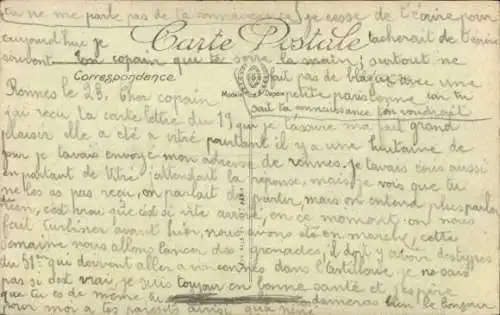 tu ne me parle pas de ta connaissance je cesse de t'écrire pour
aujourdhue je Carte Postale tacherait de t'écrire
souvent ton copain que te serre la main, surtout ne
Correspondence fait pas de blague avec une
Rennes le 23. Cher copain petite parisienne car tu
sait ta connaissance t'en voudrait
j'ai reçu ta carte lettre du 19 que je t'assure ma fait grand
plaisir elle a été a vitré pourtant il y a une huitaine de
jour je tavais envoyé mon adresse de rennes. Je tavais écris aussi
en partant de Vitré j'attendait la réponse, mais je vois que tu
ne les as pas reçu, on parlait de partir, mais on entend plus parler
rien, c'est vrai que c'est si vite arrivé, en ce moment on nous
fait turbiner avant hier, nous avons été en marche, cette
semaine nous allons lancer des grenades, il doit y avoir des types
du 51eme qui doivent aller a vincennes dans l'artillerie je ne sais
pas si c'est vrai, je suis toujour en bonne santé et j'espère
que tu es de même tu donneras bien le bonjour
pour moi a tes parents ainsi que